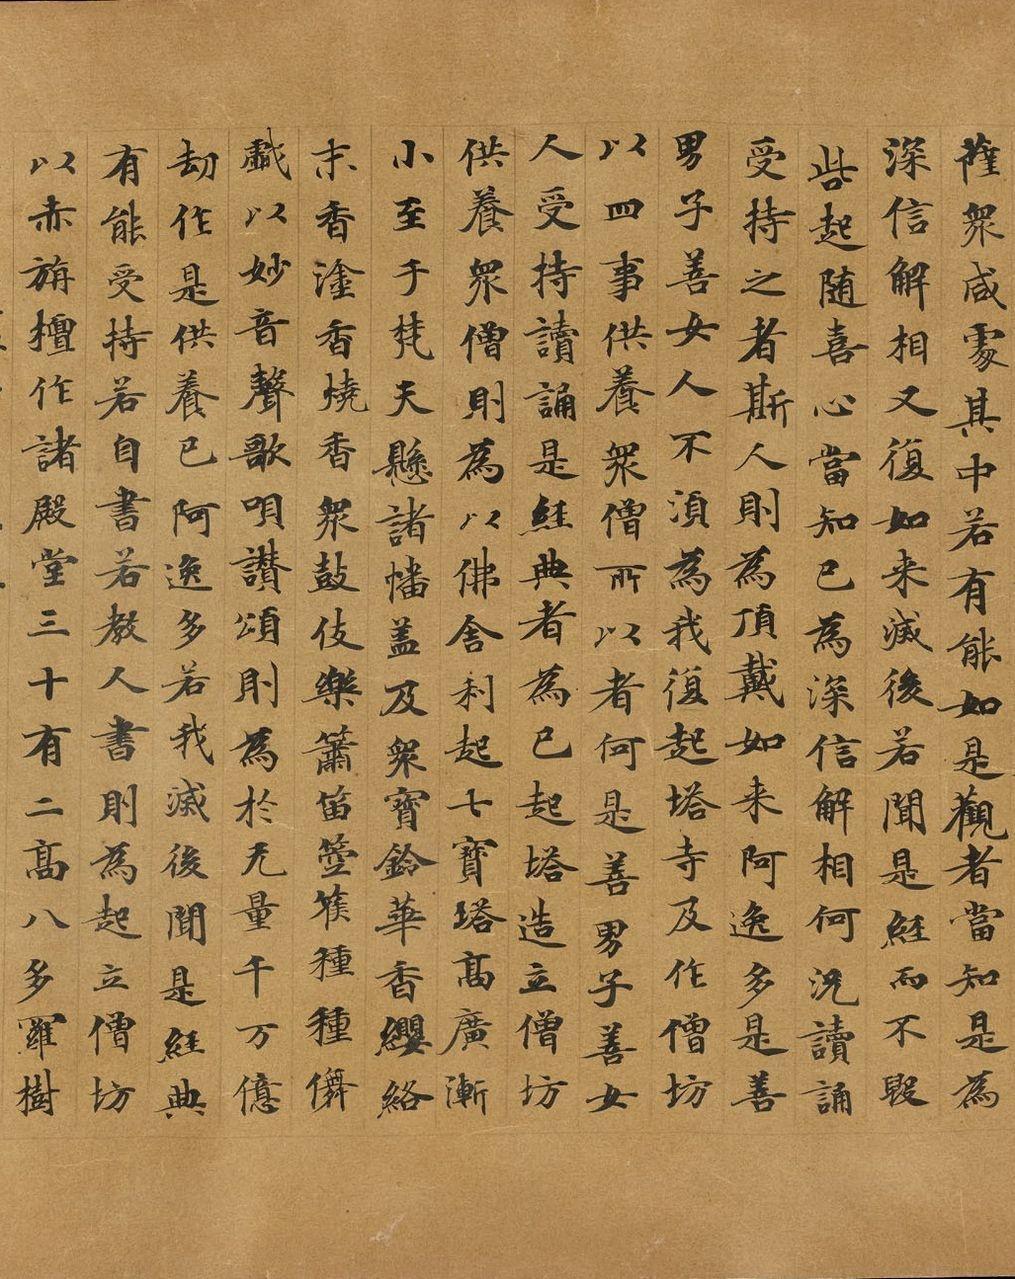 薩衆咸䖏其中若有能如是觀者當知是為
深信解相又復如来滅後若聞是經而不毀
呰起随喜心當知已為深信解相何况讀誦
受持之者斯人則為頂戴如来阿逸多是善
男子善女人不湏為我復起塔寺及作僧坊
以四事供養衆僧所以者何是善男子善女
人受持讀誦是經典者為已起塔造立僧坊
供養衆僧則為以佛舎利起七寶塔髙廣漸
小至于梵天懸諸幡盖及衆寶鈴華香纓絡
末香塗香燒香衆鼓伎樂簫笛箜篌種種儛
戲以妙音聲歌唄讃頌則為於无量千万億
劫作是供養已阿逸多若我滅後聞是經典
有能受持若自書若教人書則為起立僧坊
以赤旃檀作諸殿堂三十有二髙八多羅樹